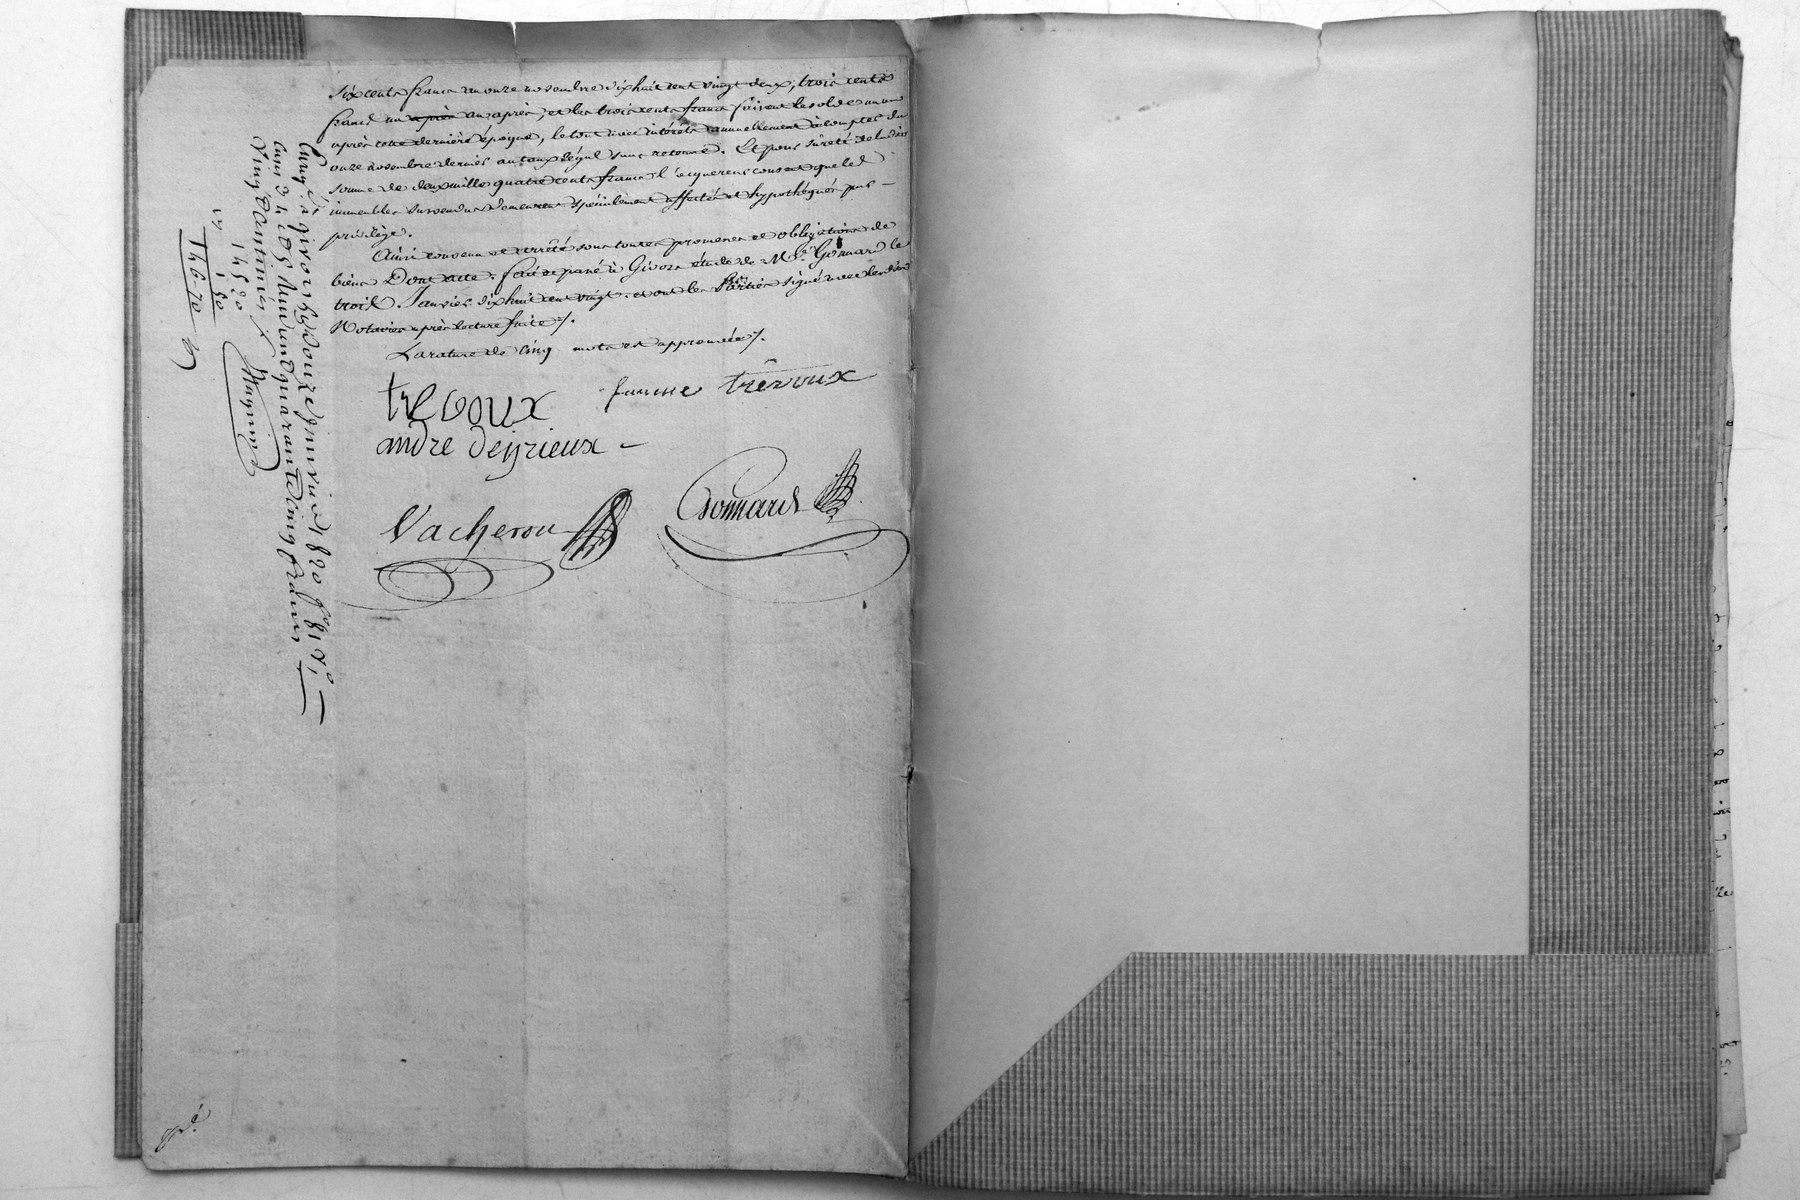 six cents francs au onze novembre dix huit cent vingt deux, trois cents
francs un après an après, et les trois cents francs faisant le solde un an
après cette dernière époque, le tout avec intérêts annuellement à compter du
onze novembre dernier au taux légal sans retenue. Et pour sûreté de ladite
somme de deux mille quatre cents francs l'acquereur consent que les
immeubles survendus demeurent spécialement affectés et hypothéqués par
privilège.
Ainsi convenu et arrêté sous toutes promesses et obligations de
biens Dont acte. fait et passé à Givors étude de Me. Gonnard le
trois Janvier dix huit cent vingt. et ont les Parties signé avec lesdits
Notaires après lecture faite /.
La rature de cinq mots est approuvée /.
trevoux trêvoux
andre deyrieux
Vacheron Gonnard
Enreg. à givors le douze janvier 1820 f° 81 r°
Cent quarante cinq francs
vingt centimes
145 20
1 50
146 70